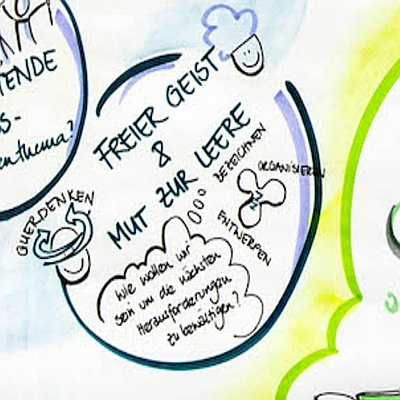 TENDE
S-
enthema?
FREIER GEIST
&
MUT ZUR LEERE
QUERDENKEN
BEZEICHNEN
ORGANISIEREN
ENTWERFEN
Wie wollen wir
sein um die nächsten
Herausforderungen
zu bewältigen?